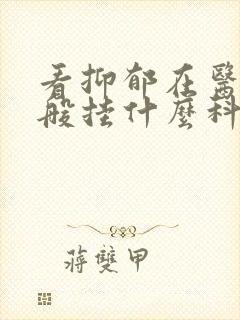 看抑郁在醫
般挂什麼科
蔣雙甲